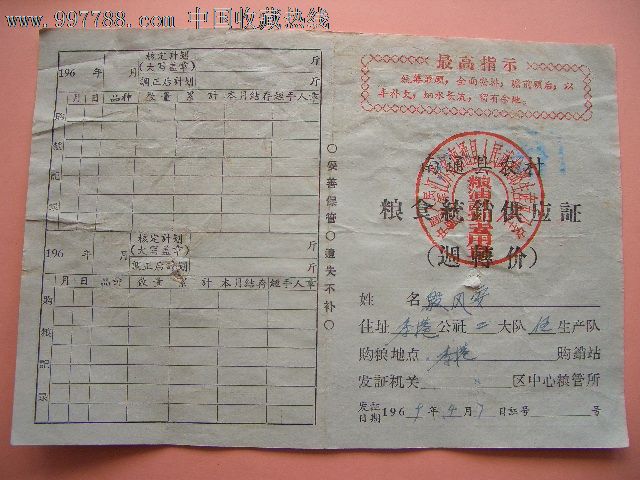 www.997788.com 中国收藏热线
196 年 月
核定计划
(大写盖章)
斤
调正后计划
斤
月 日 品种 数量 累计 本月结存 经手人章
购粮记录
196 年 月
核定计划
(大写盖章)
斤
调正后计划
斤
月 日 品种 数量 累计 本月结存 经手人章
购粮记录
○妥善保管○遗失不补○
最高指示
统筹兼顾，全面安排；瞻前顾后，以
丰补欠；细水长流，留有余地。
南通县农村
粮食统销供应証
(週转价)
姓名
住址 李港 公社 二 大队 伍 生产队
购粮地点 李港 购销站
发証机关 区中心粮管所
发証日期 1969年 月 7日 証号 号